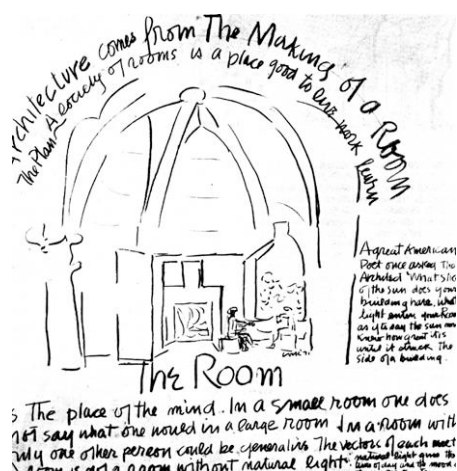 Architecture comes from The Making of a Room
The Plan A society of rooms is a place good to live work learn
A great American
Poet once asked The
Architect 'What slice
of the sun does your
building have. What
light enters your Room
as if to say the sun never
knew how great it is
until it struck the
side of a building.
The Room
s The place of the mind. In a small room one does
not say what one would in a large room In a room with
only one other person could be generative The vectors of each meet
room is not a room without natural light
natural light gives the